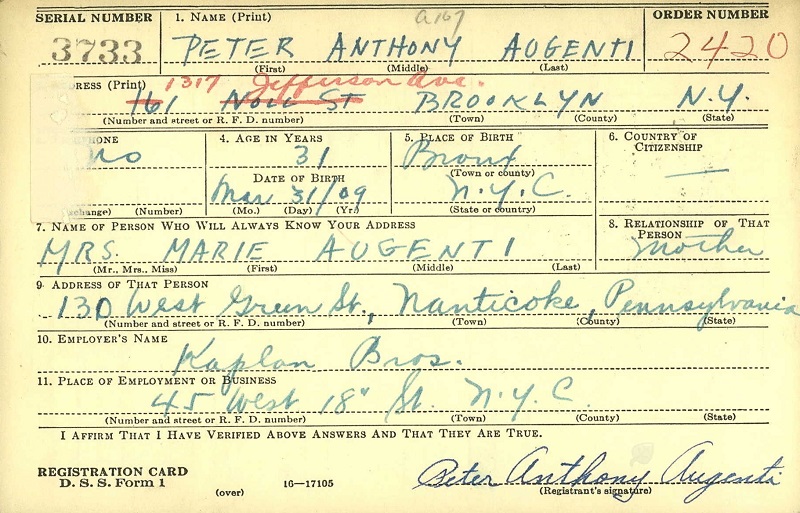 SERIAL NUMBER 1. NAME (Print) a167 ORDER NUMBER
3733 PETER ANTHONY AUGENTI 2420
(First) (Middle) (Last)
DRESS (Print) 1317 Jefferson Ave.
161 NOLL ST BROOKLYN N.Y.
(Number and street or R. F. D. number) (Town) (County) (State)
PHONE 4. AGE IN YEARS 5. PLACE OF BIRTH 6. COUNTRY OF CITIZENSHIP
no 31 Bronx —
(Town or county)
DATE OF BIRTH
Mar 31/09 N.Y.C.
xchange) (Number) (Mo.) (Day) (Yr.) (State or country)
7. NAME OF PERSON WHO WILL ALWAYS KNOW YOUR ADDRESS 8. RELATIONSHIP OF THAT PERSON
MRS. MARIE AUGENTI Mother
(Mr., Mrs., Miss) (First) (Middle) (Last)
9. ADDRESS OF THAT PERSON
130 West Green St., Nanticoke, Pennsylvania
(Number and street or R. F. D. number) (Town) (County) (State)
10. EMPLOYER'S NAME
Kaplan Bros.
11. PLACE OF EMPLOYMENT OR BUSINESS
45 West 18" St. N.Y.C.
(Number and street or R. F. D. number) (Town) (County) (State)
I AFFIRM THAT I HAVE VERIFIED ABOVE ANSWERS AND THAT THEY ARE TRUE.
REGISTRATION CARD
D. S. S. Form 1 (over) 16—17105
Peter Anthony Augenti
(Registrant's signature)